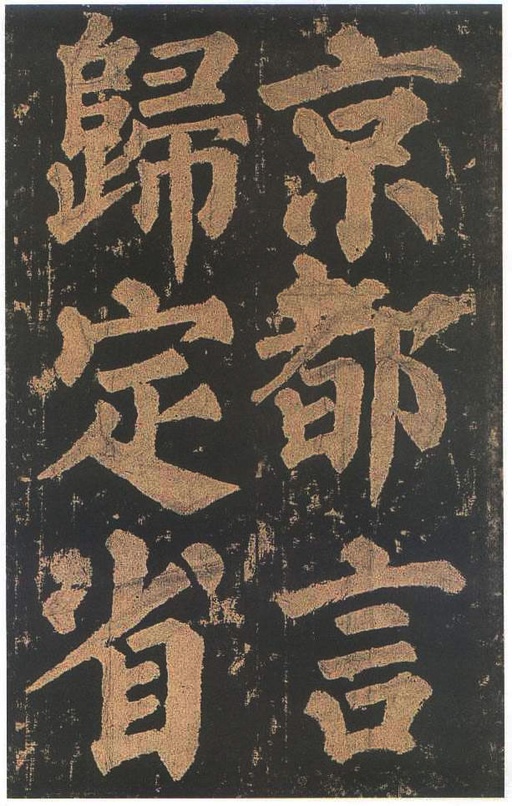 京都言
歸定省